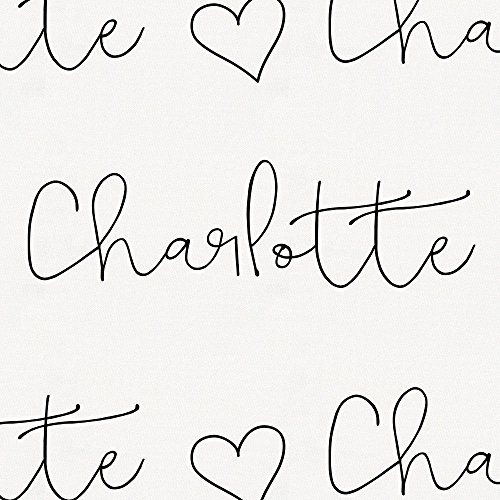 tte ♡ Cha
Charlotte
tte ♡ Cha